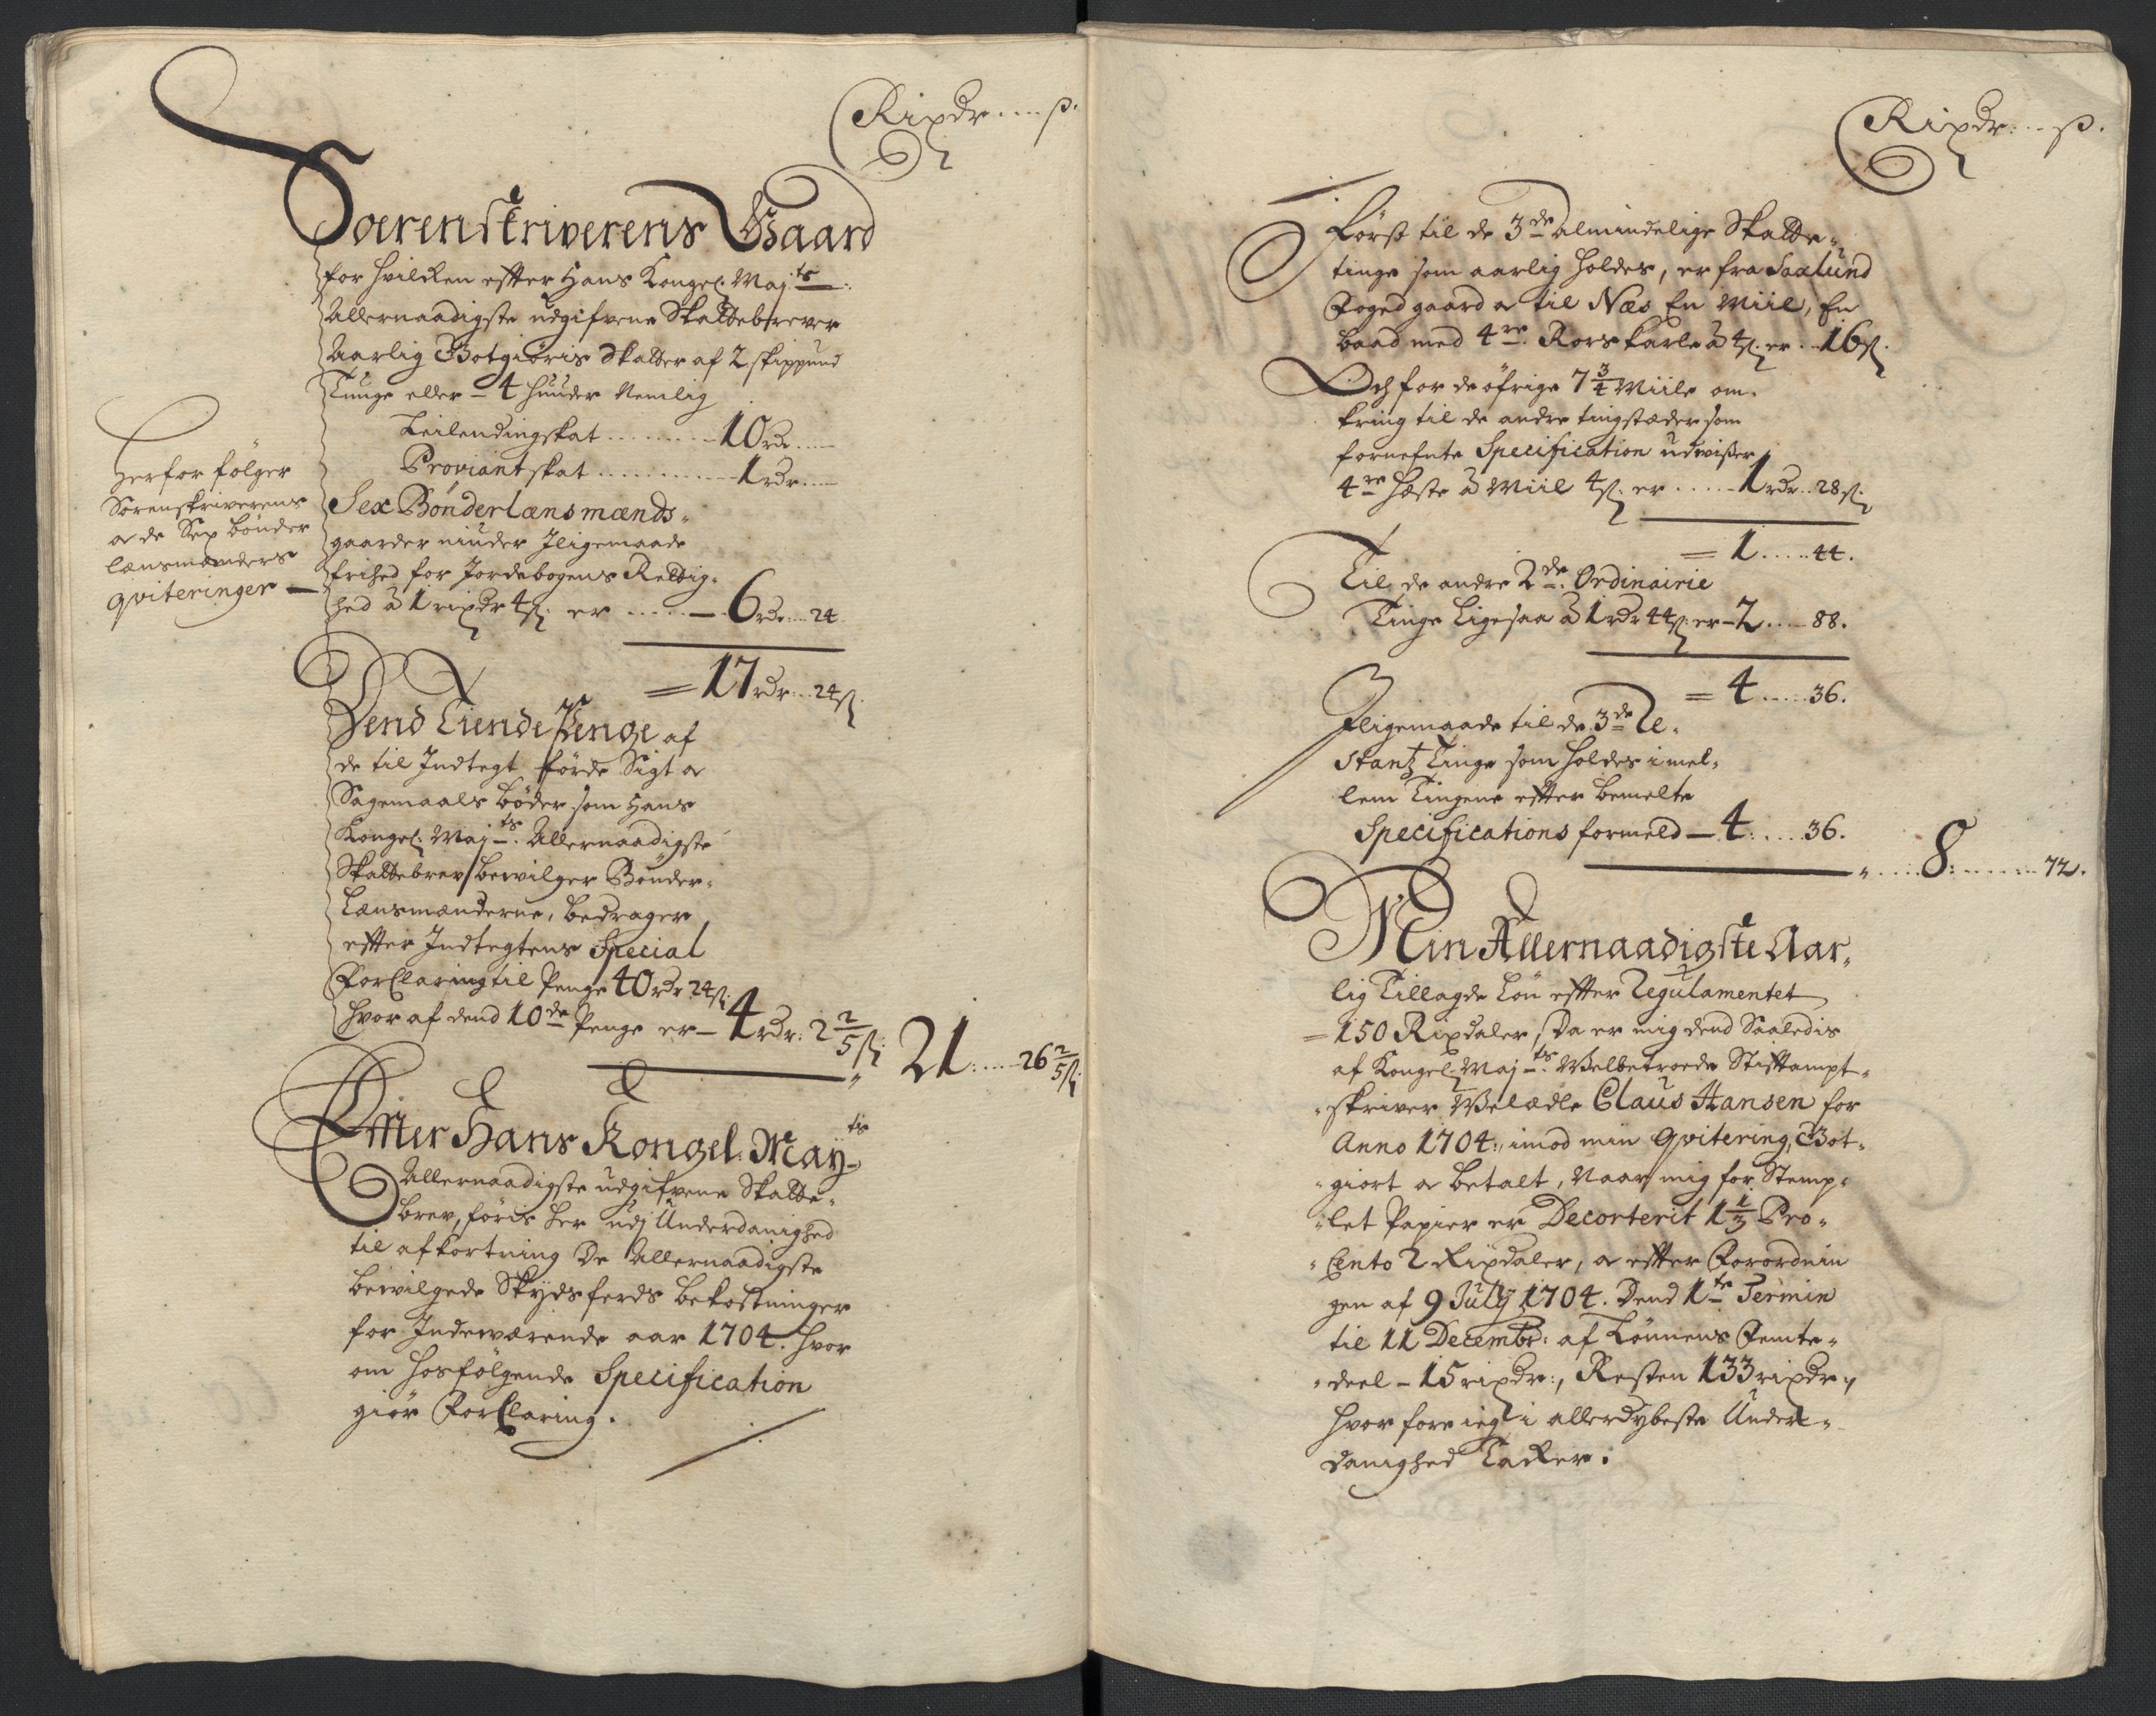 Rixdr....ß.
Soerenskriverens Gaard
for hvilcken effter Hans Kongel: Maj:ts
Allernaadigste udgifvene Skattebrever
Aarlig Botgiöris Skatter af 2 skippund
Tunge eller - 4 Huuder Nemlig
Leilendingskat ......... 10 rdr....
Proviantskat ............ 1 rdr....
Herfor fölger
Sörenskriverens
og de Sex bönder
lænsmænders
qviteringer —
Sex Bönderlænsmænds-
gaarder niuder Jligemaade
frihed for Jordebogens Rettig-
hed à 1 rixdr 4 ß: er ...... 6 rdr....24
= 17 rdr...24 ß
Dend Tiende Penge af
de til Indtegt förde Sigt og
Sagemaals böder som Hans
Kongel: Maj:ts Allernaadigste
Skattebrev bewilger Bönder-
Lænsmænderne, bedrager
effter Indtegtens Special
Forclaring til Penge 40 rdr 24 ß:
hvor af dend 10de Penge er - 4 rdr: 2 2/5 ß: 21.....26 2/5 ß:
Effter Hans Kongel: May:ts
Allernaadigste udgifvene Skatte-
brev, föris her udj Underdanighed
til afkortning De Allernaadigste
bewilgede Skydsferds bekostninger
for Indewærende aar 1704. hvor
om hosfölgende Specification
giör Forclaring.
Rixdr:...ß.
Först til de 3de almindelige Skatte-
tinge som aarlig holdes, er fra Saxlund
Fogedgaard og til Næs En Miil, En
baad med 4re Rorskarle à 4 ß: er .. 16 ß.
Och for de öfrige 7 3/4 Miile om-
kring til de andre tingstæder som
fornefnte Specification udwißer
4re Heste à Miil 4 ß: er ..... 1 rdr..28 ß:
= 1.....44.
Til de andre 2de Ordinairie
Tinge Ligesaa à 1 rdr 44 ß: er - 2.....88.
= 4.....36.
Jligemaade til de 3de Re-
stantz Tinge som holdes imel-
lem Tingene effter bemelte
Specifications formeld — 4:....36.
8:.......72.
Min Allernaadigste Aar-
lig Tillagde Lön effter Regulamentet
= 150 Rixdaler, Da er mig dend Saaledis
af Kongel: Maj:ts Welbetroede Stiftampt-
skriver Welædle Claus Hansen for
Anno 1704:, imod min Qvitering, Bot-
giort og betalt, Naar mig for Stemp-
let Papier er Decorterit 1 1/3 Pro-
Cento 2 Rixdaler, og effter Forordnin
gen af 9 July 1704. Dend 1te Termin
til 11 Decembr: af Lönnens Femte-
deel - 15 rixdr:, Resten 133 rixdr:,
hvor fore ieg i allerdybeste Under-
danighed Tacker: